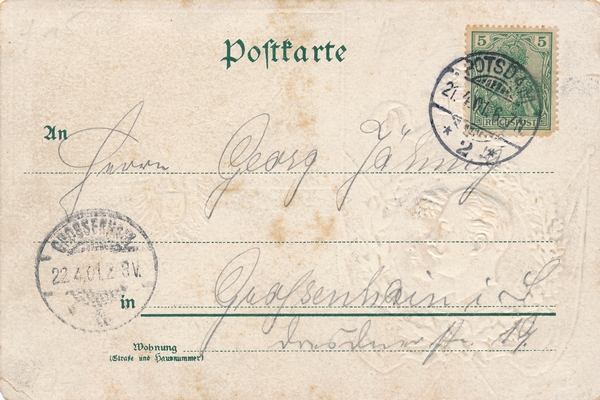 Postkarte
5 5
REICHSPOST
POTSDAM
21.4.01.
* 2 *
An Herrn Georg
GROSSENHAIN
22.4.01. 8V.
in Großenhain i. S.
Wohnung Dresdnerstr. 19.
(Straße und Hausnummer)